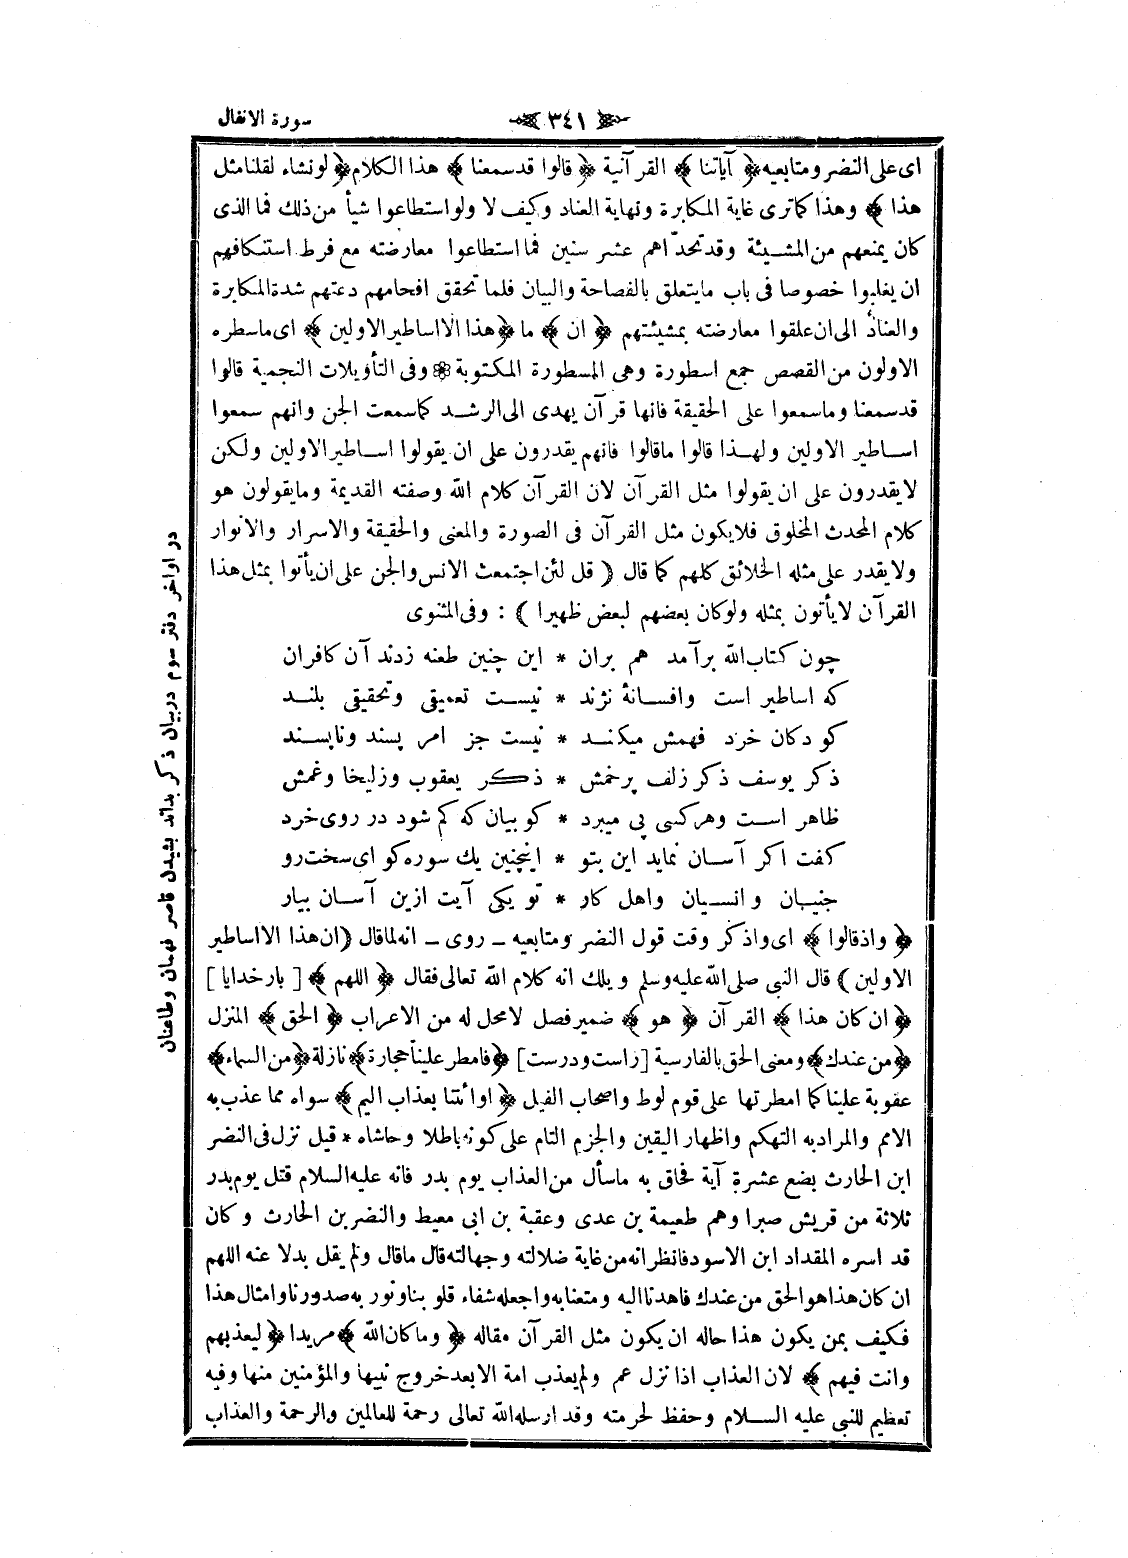 سورة الانفال
٣٤١
اى على النضر ومتابعيه ﴿ آياتنا ﴾ القرآنية ﴿ قالوا قد سمعنا ﴾ هذا الكلام ﴿ لو نشاء لقلنا مثل
هذا ﴾ وهذا كماترى غاية المكابرة ونهاية العناد وكيف لا ولو استطاعوا شيأ من ذلك فما الذى
كان يمنعهم من المشيئة وقد تحدّاهم عشر سنين فما استطاعوا معارضته مع فرط استنكافهم
ان يغلبوا خصوصا فى باب مايتعلق بالفصاحة والبيان فلما تحقق افحامهم دعتهم شدة المكابرة
والعناد الى ان علقوا معارضته بمشيئتهم ﴿ ان ﴾ ما ﴿ هذا الا اساطير الاولين ﴾ اى ماسطره
الاولون من القصص جمع اسطورة وهى المسطورة المكتوبة ❁ وفى التأويلات النجمية قالوا
قد سمعنا وماسمعوا على الحقيقة فانها قرآن يهدى الى الرشد كماسمعت الجن وانهم سمعوا
اساطير الاولين ولهذا قالوا ماقالوا فانهم يقدرون على ان يقولوا اساطير الاولين ولكن
لايقدرون على ان يقولوا مثل القرآن لان القرآن كلام الله وصفته القديمة ومايقولون هو
كلام المحدث المخلوق فلايكون مثل القرآن فى الصورة والمعنى والحقيقة والاسرار والانوار
ولايقدر على مثله الخلائق كلهم كما قال ( قل لئن اجتمعت الانس والجن على ان يأتوا بمثل هذا
القرآن لايأتون بمثله ولوكان بعضهم لبعض ظهيرا ) : وفى المثنوى
چون كتاب الله برآمد هم بران * اين چنين طعنه زدند آن كافران
كه اساطير است وافسانۀ نژند * نيست تعميقى وتحقيقى بلند
كودكان خرد فهمش ميكنند * نيست جز امر پسند وناپسند
ذكر يوسف ذكر زلف پرخمش * ذكر يعقوب وزليخا وغمش
ظاهر است وهركسى پى ميبرد * كو بيان كه كم شود در روى خرد
كفت اكر آسان نمايد اين بتو * اينچنين يك سوره كو اى سخت رو
جنيان و انسيان واهل كار * تو يكى آيت ازين آسان بيار
﴿ واذ قالوا ﴾ اى واذكر وقت قول النضر ومتابعيه ـ روى ـ انه لماقال ( ان هذا الا اساطير
الاولين ) قال النبى صلى الله عليه وسلم ويلك انه كلام الله تعالى فقال ﴿ اللهم ﴾ [ بار خدايا ]
﴿ ان كان هذا ﴾ القرآن ﴿ هو ﴾ ضمير فصل لا محل له من الاعراب ﴿ الحق ﴾ المنزل
﴿ من عندك ﴾ ومعنى الحق بالفارسية [ راست ودرست ] ﴿ فامطر علينا حجارة ﴾ نازلة ﴿ من السماء ﴾
عقوبة علينا كما امطرتها على قوم لوط واصحاب الفيل ﴿ او ائتنا بعذاب اليم ﴾ سواه مما عذب به
الامم والمراد به التهكم واظهار اليقين والجزم التام على كونه باطلا وحاشاه * قيل نزل فى النضر
ابن الحارث بضع عشرة آية فحاق به ماسأل من العذاب يوم بدر فانه عليه السلام قتل يوم بدر
ثلاثة من قريش صبرا وهم طعيمة بن عدى وعقبة بن ابى معيط والنضر بن الحارث وكان
قد اسره المقداد ابن الاسود فانظر انه من غاية ضلالته وجهالته قال ماقال ولم يقل بدلا عنه اللهم
ان كان هذا هو الحق من عندك فاهدنا اليه ومتعنابه واجعله شفاء قلوبنا ونور به صدورنا وامثال هذا
فكيف بمن يكون هذا حاله ان يكون مثل القرآن مقاله ﴿ وما كان الله ﴾ مريدا ﴿ ليعذبهم
وانت فيهم ﴾ لان العذاب اذا نزل عم ولم يعذب امة الا بعد خروج نبيها والمؤمنين منها وفيه
تعظيم للنبى عليه السلام وحفظ لحرمته وقد ارسله الله تعالى رحمة للعالمين والرحمة والعذاب
در اواخر دفتر سوم دربيان ذكر بداند يشيدن قاصر فهمان وطاعنان